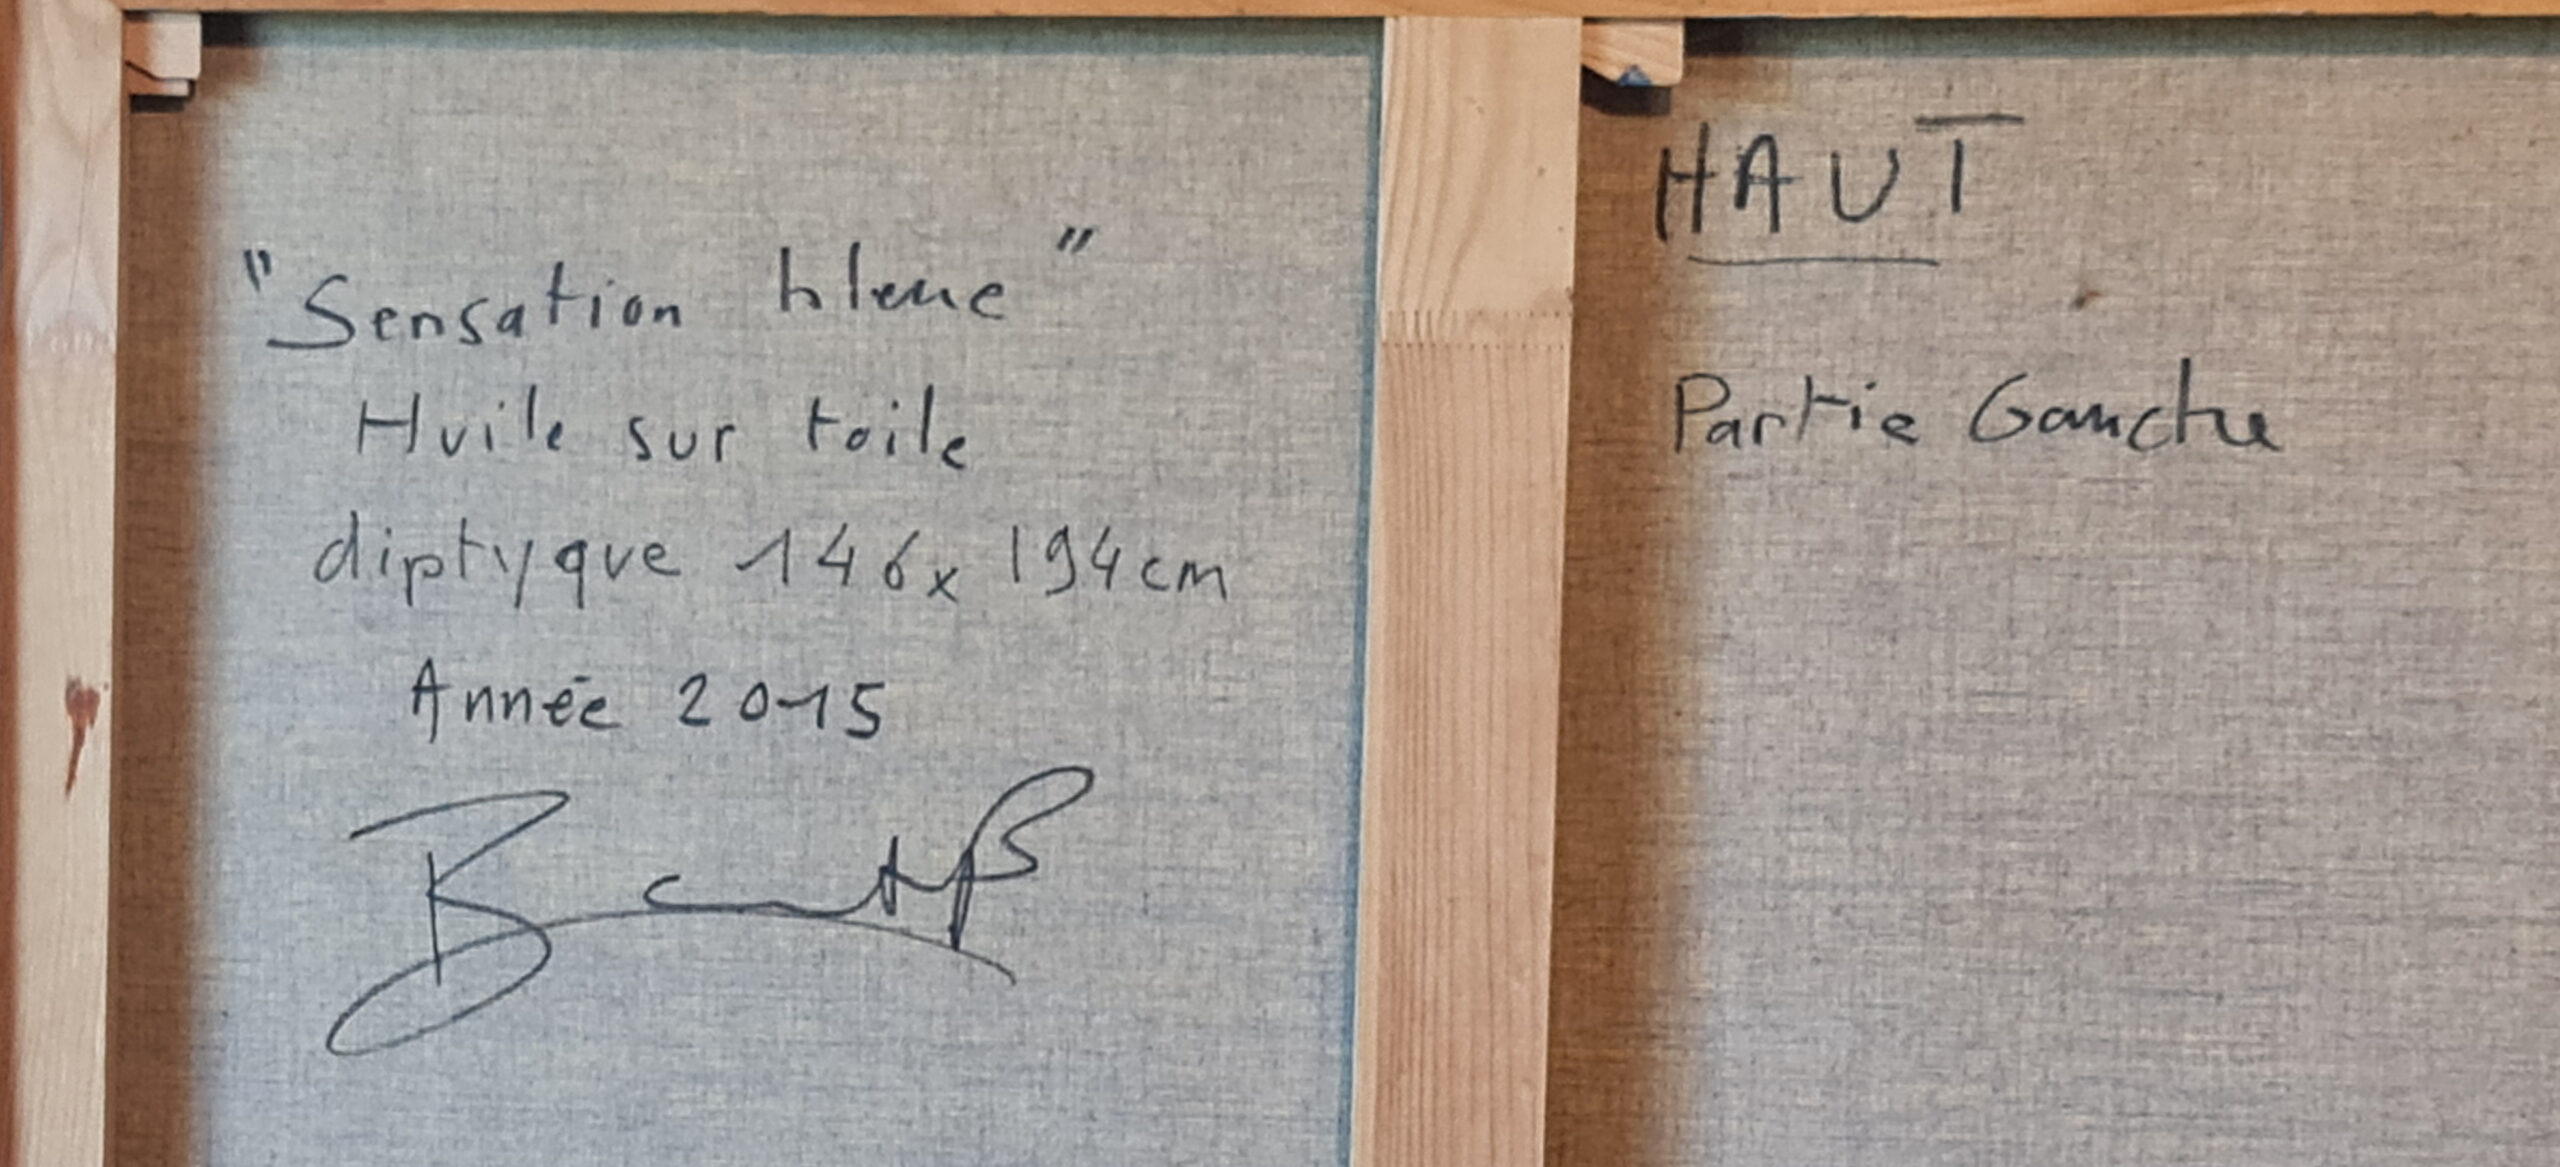 "Sensation bleue"
Huile sur toile
diptyque 146x 194cm
Année 2015
HAUT
Partie Gauche